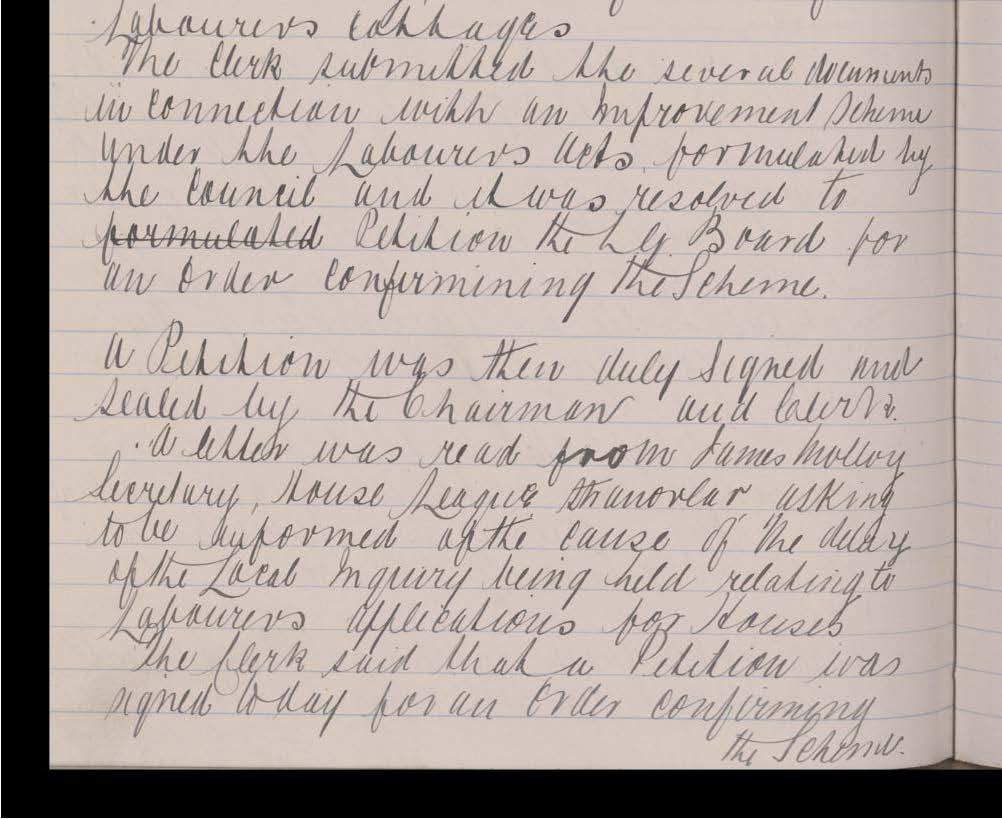 Labourers Cottages
The Clerk submitted the several documents
in connection with an Improvement Scheme
under the Labourers Acts formulated by
the Council and it was resolved to
formulated Petition the L.G. Board for
an Order Confirmining the Scheme.
A Petition was then duly signed and
sealed by the Chairman and Clerk.
A letter was read from James Molloy
Secretary, House League Stranorlar asking
to be informed of the cause of the delay
of the Local Inquiry being held relating to
Labourers applications for Houses
The Clerk said that a Petition was
signed to day for an Order confirming
the Scheme.